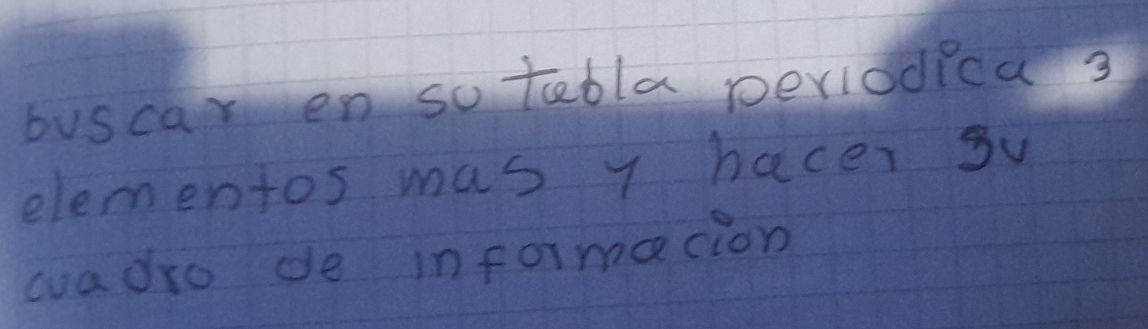 buscar en su tabla periodica 3
elementos mas y hacer su
cuadro de informacion